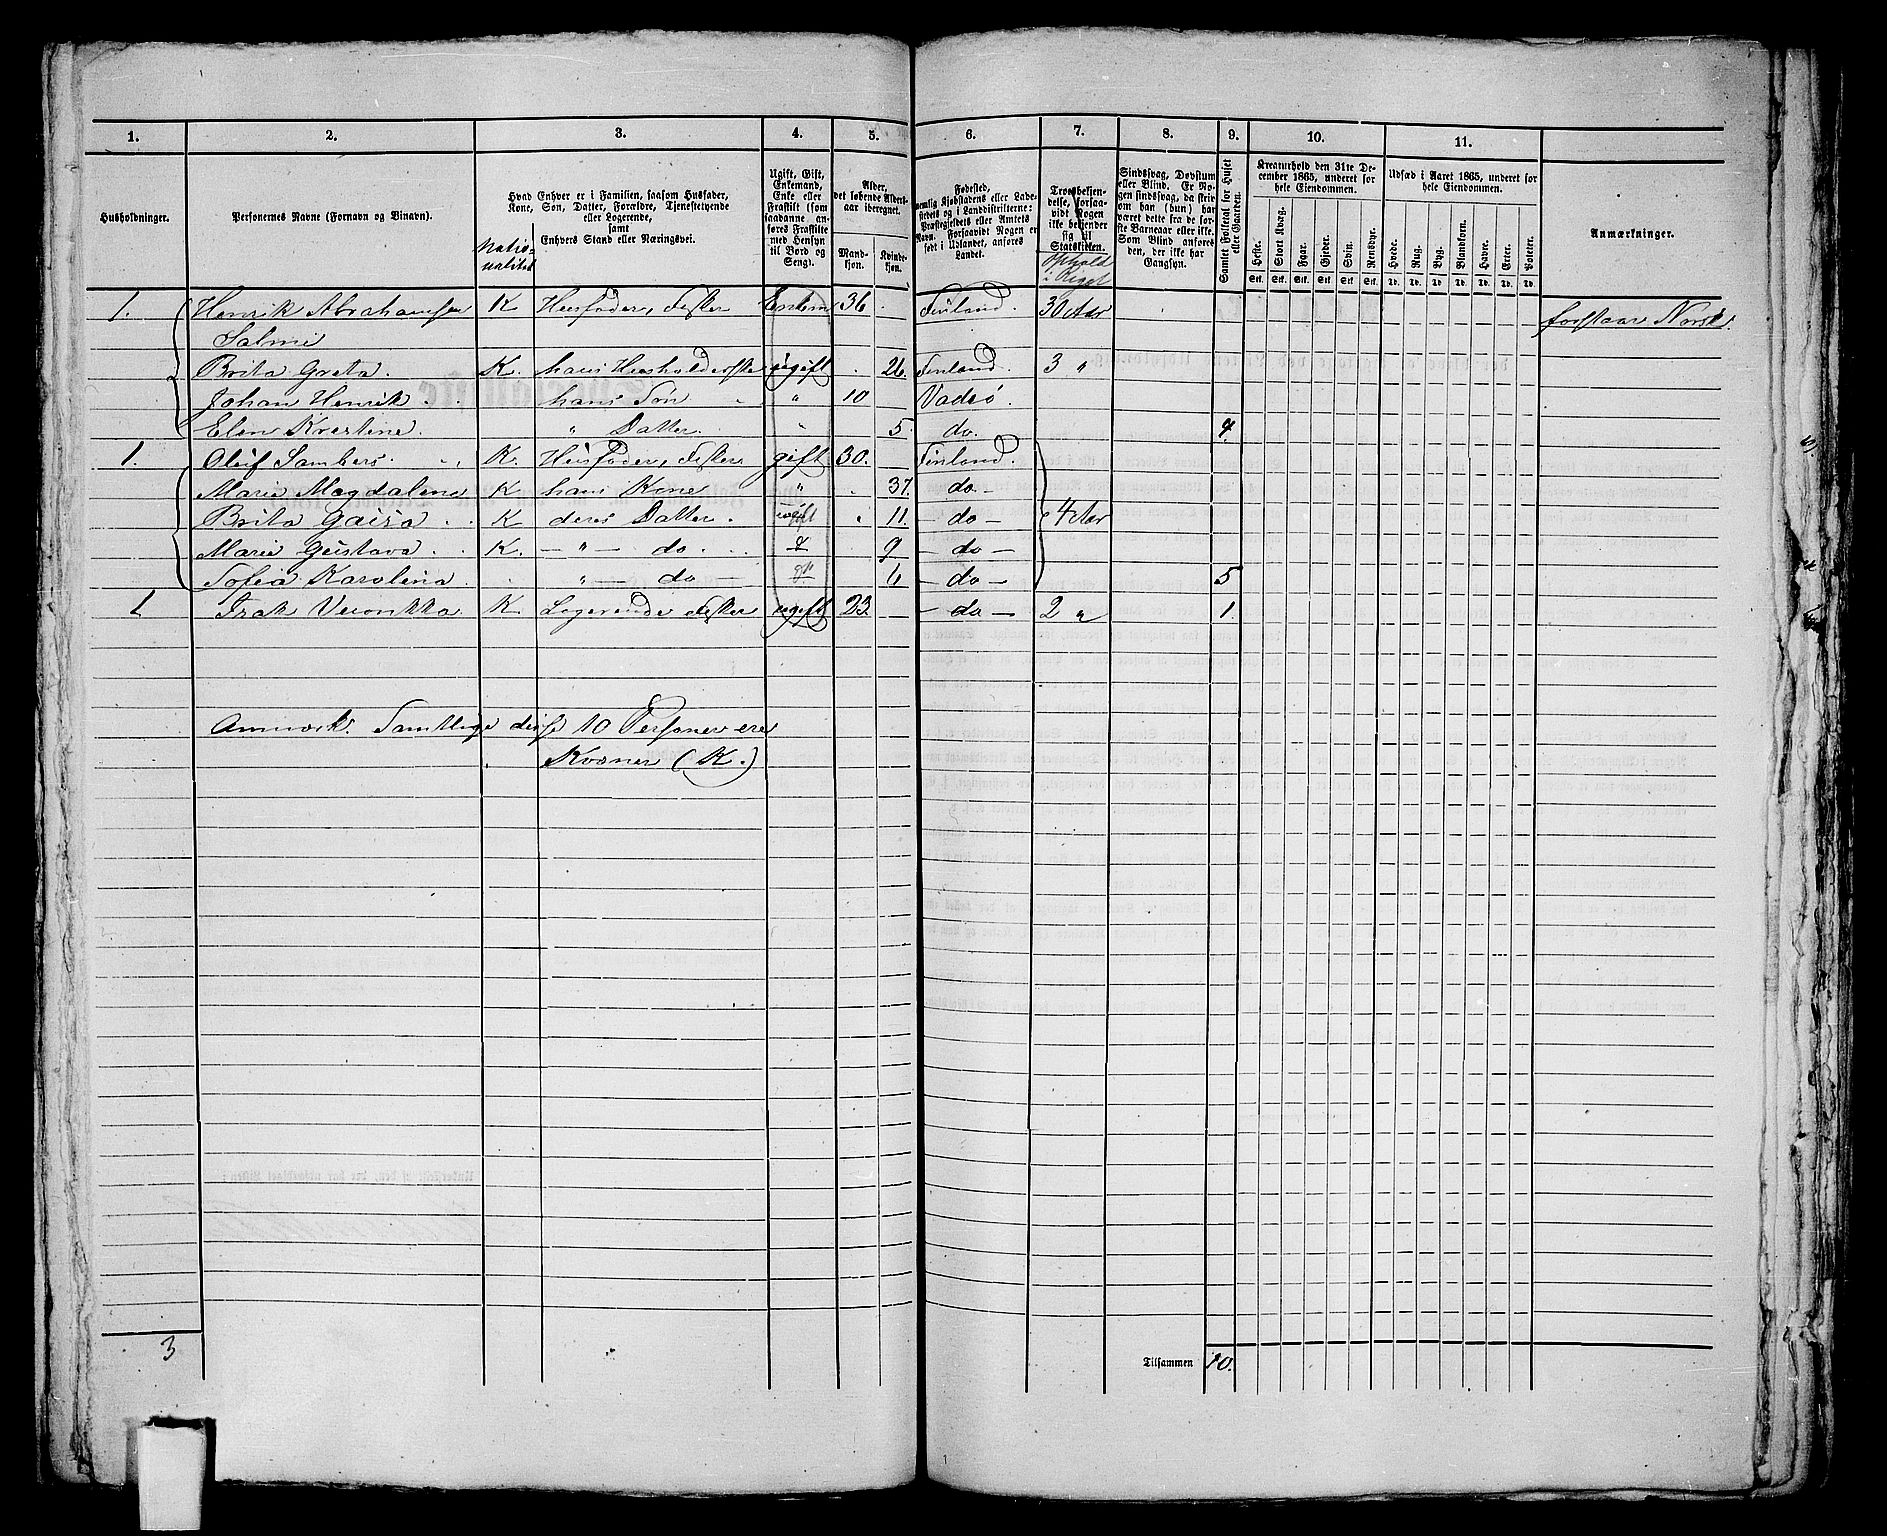 1. 2. 3. 4. 5. 6. 7. 8. 9. 10. 11.
Husholdninger.
Personernes Navne (Fornavn og Binavn).
Natio-
nalitet
Hvad Enhver er i Familien, saasom Husfader,
Kone, Søn, Datter, Forældre, Tjenestetyende
eller Logerende,
samt
Enhvers Stand eller Næringsvei.
Ugift, Gift,
Enkemand,
Enke eller
Fraskilt (som
saadanne an-
føres Fraskilte
med Hensyn
til Bord og
Seng).
Alder,
det løbende Alders-
aar iberegnet.
Mand-
kjøn.
Kvinde-
kjøn.
Fødested,
nemlig Kjøbstadens eller Lade-
stedets og i Landdistrikterne:
Præstegjeldets eller Amtets
Navn. Forsaavidt Nogen er
født i Udlandet, anføres
Landet.
Troesbekjen-
delse, forsaa-
vidt Nogen
ikke bekjender
sig til
Statskirken.
Ophold
i Riget
Sindssvag, Døvstum
eller Blind. Er No-
gen sindssvag, da skriv
om han (hun) har
været dette fra de for-
ste Barneaar eller ikke.
Som Blind anføres
den, der ikke har
Gangsyn.
Samlet Folketal for Huset
eller Gaarden.
Kreaturhold den 31te De-
cember 1865, underet for
hele Eiendommen.
Heste. Stort Kvæg. Faar. Gjeder. Svin. Rensdyr.
Stk. Stk. Stk. Stk. Stk. Stk.
Udsæd i Aaret 1865, underet for
hele Eiendommen.
Hvede. Rug. Byg. Blandkorn. Havre. Erter. Poteter.
Td. Td. Td. Td. Td. Td. Td.
Anmærkninger.
1. Henrik Abrahamsen K Huusfader, Fisker Enkem 36 Finland. 30 Aar forstaar Norsk
Salmi
Brita Greta. K. hans Huusholderske ugift 26. Finland. 3 "
Johan Henrik hans Søn " 10 Vadsø.
Elen Kristine. " Datter. " 5. do. 4
1. Oluf Sambers. K. Huusfader, Fisker gift 30. Finland.
Marie Magdalena K hans Kone " 37. do -
Brita Gaisa K deres Datter. ugift 11. - do - 4 Aar
Marie Gustava K. - " - do. 9 do -
Sofia Karolina " - do 6 - do - 5
1 Isak Veronkka K. Logerende Fisker ugift 23. - do - 2 " 1.
Anmærk. Samtlige disse 10 Personer ere
Kvæner (K.)
3
Tilsammen 10.